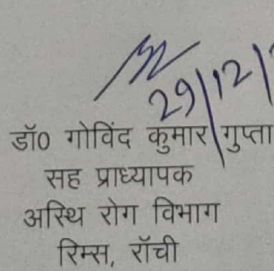 29/12/
डॉ0 गोविंद कुमार गुप्ता
सह प्राध्यापक
अस्थि रोग विभाग
रिम्स, रॉची